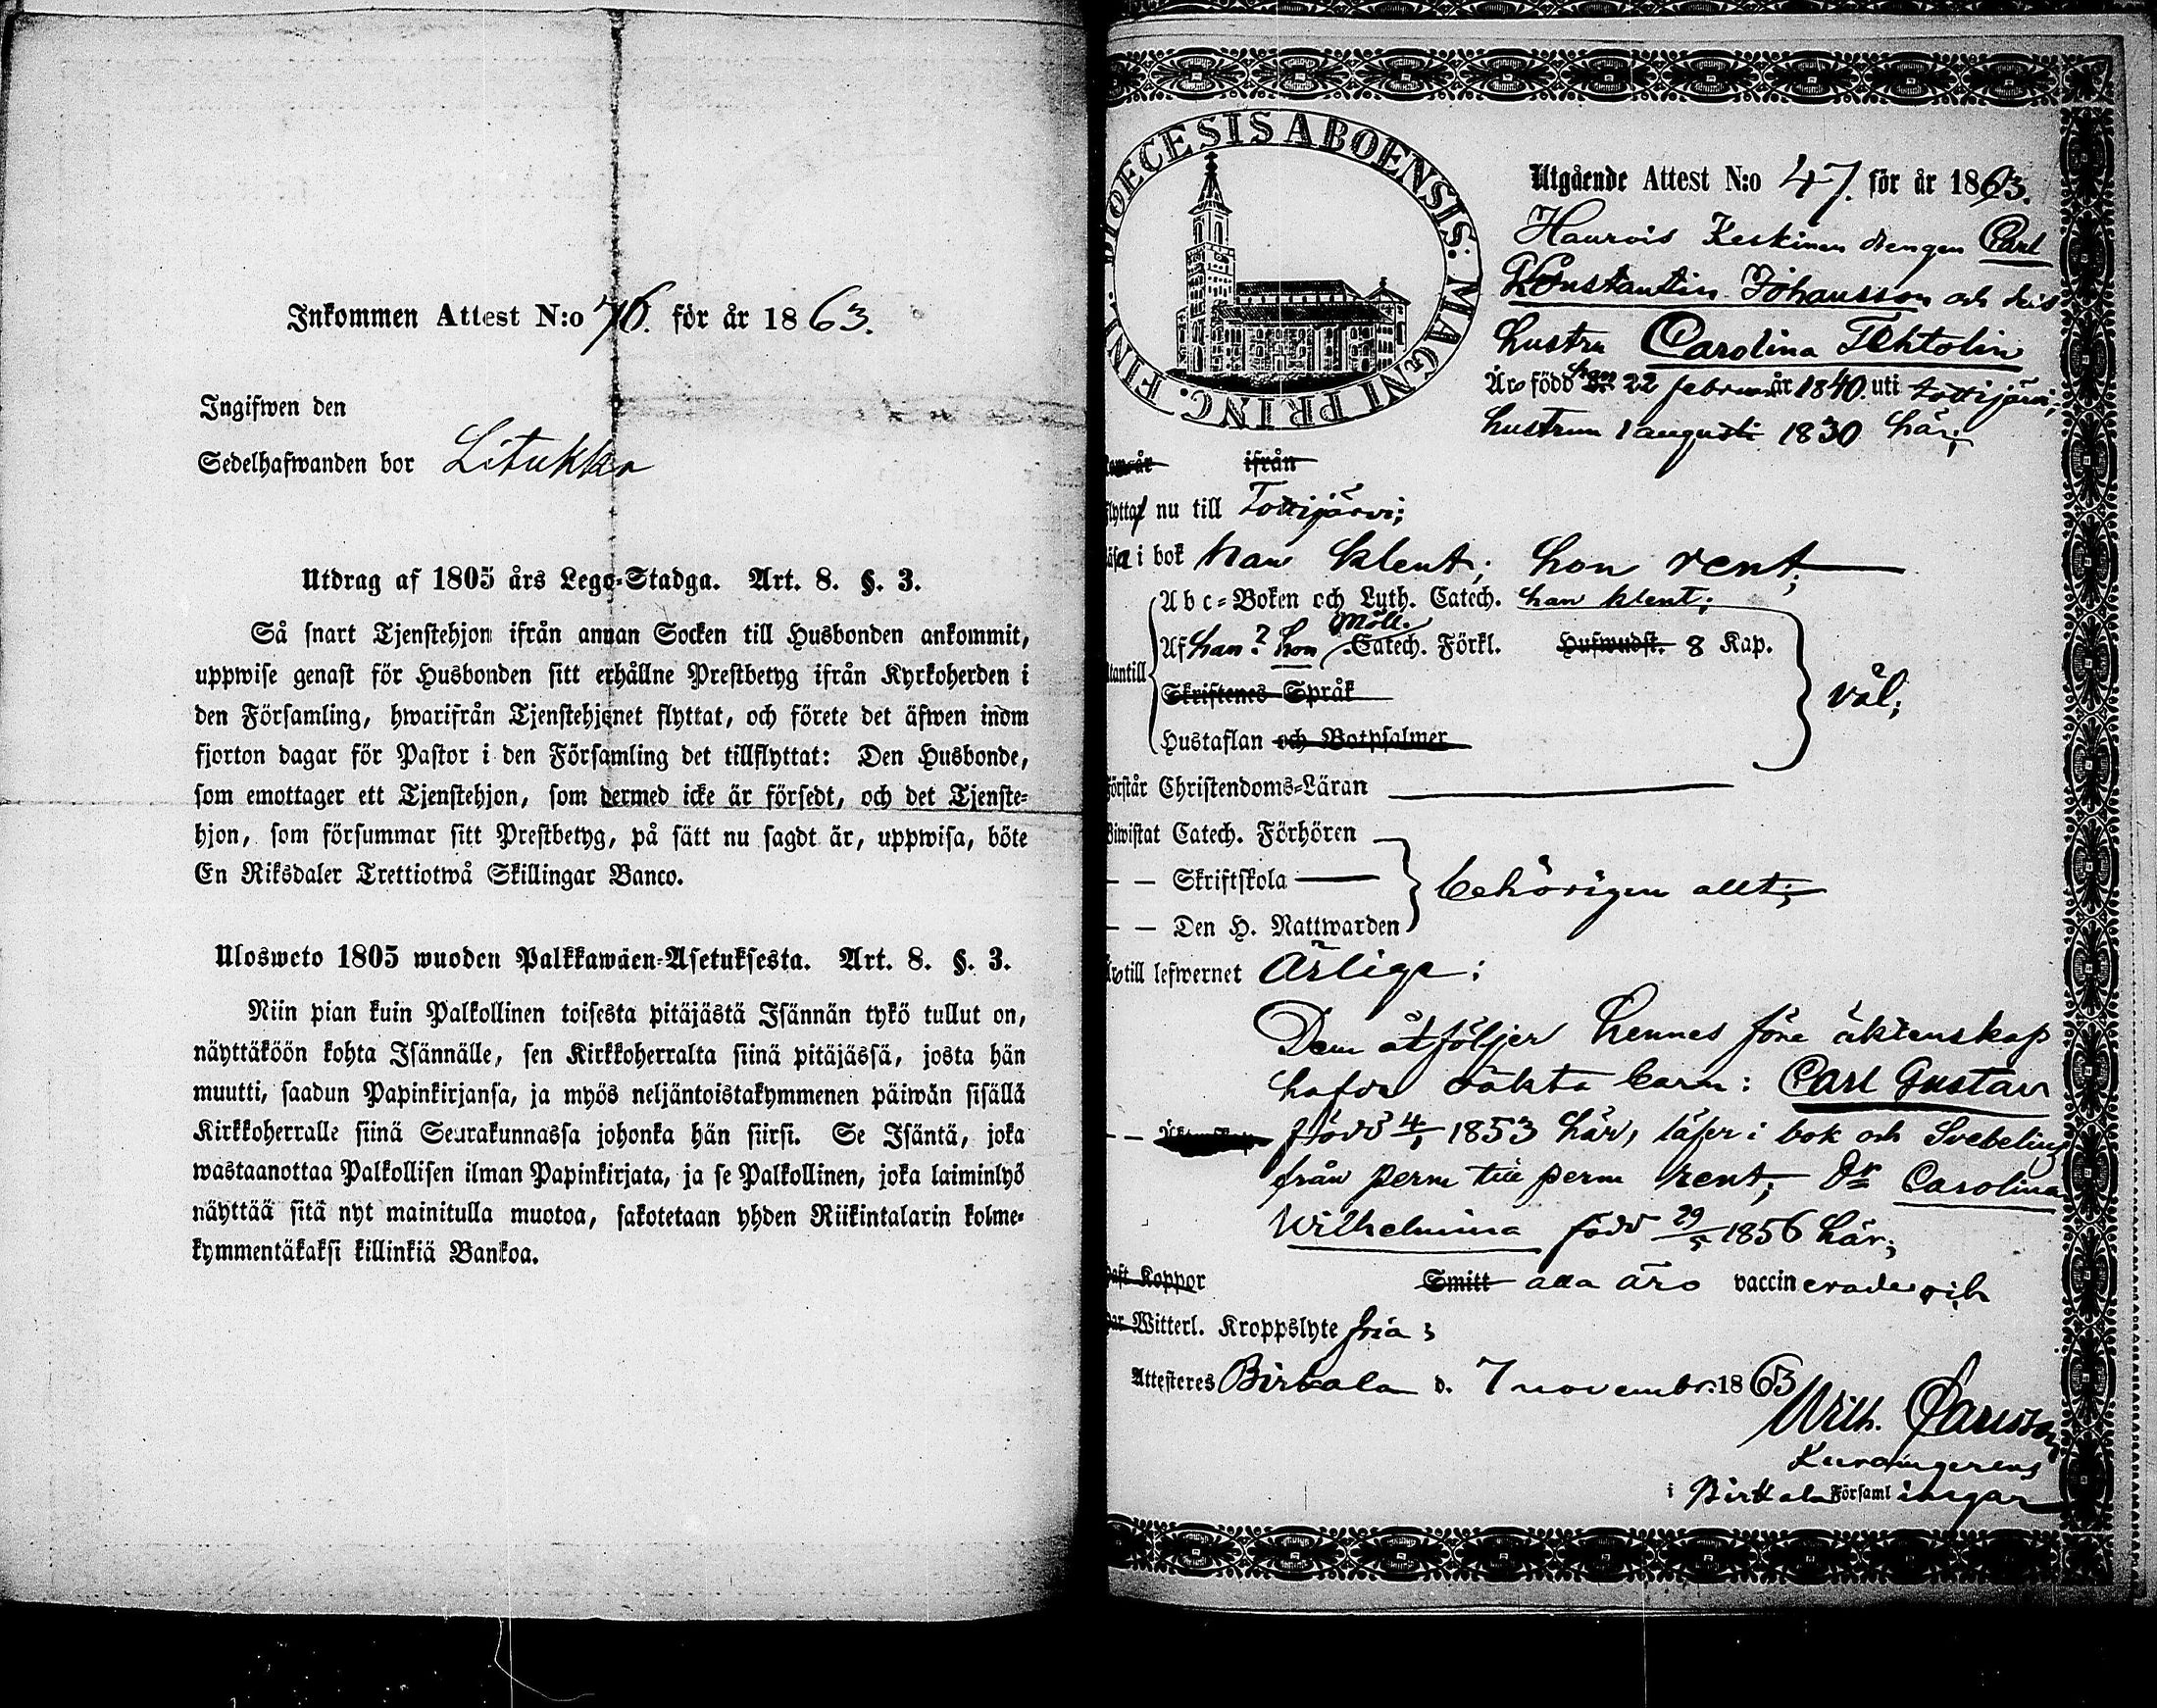 Inkommen Attest N:o 76. för år 1863.
Ingifwen den
Sedelhafwanden bor Litukka
Utdrag af 1805 års Lego-Stadga. Art. 8. §. 3.
Så snart Tjenstehjon ifrån annan Socken till Husbonden ankommit,
uppwise genast för Husbonden sitt erhållne Prestbetyg ifrån Kyrkoherden i
den Församling, hwarifrån Tjenstehjonet flyttat, och förete det äfwen inom
fjorton dagar för Pastor i den Församling det tillflyttat: Den Husbonde,
som emottager ett Tjenstehjon, som dermed icke är försedt, och det Tjenste-
hjon, som försummar sitt Prestbetyg, på sätt nu sagdt är, uppwisa, böte
En Riksdaler Trettiotwå Skillingar Banco.
Ulosweto 1805 wuoden Palkkawäen-Asetuksesta. Art. 8. §. 3.
Niin pian kuin Palkollinen toisesta pitäjästä Isännän tykö tullut on,
näyttäköön kohta Isännälle, sen Kirkkoherralta siinä pitäjässä, josta hän
muutti, saadun Papinkirjansa, ja myös neljäntoistakymmenen päiwän sisällä
Kirkkoherralle siinä Seurakunnassa johonka hän siirsi. Se Isäntä, joka
wastaanottaa Palkollisen ilman Papinkirjata, ja se Palkollinen, joka laiminlyö
näyttää sitä nyt mainitulla muotoa, sakotetaan yhden Riikintalarin kolme-
kymmentäkaksi killinkiä Bankoa.
DIOECESIS ABOENSIS: MAGNI PRINC. FINL.
Utgående Attest N:o 47. för år 1863.
Haurois Keskinen drengen Carl
Konstantin Johansson och dess
hustru Carolina Tehtolin
Äro född han 22 februari år 1840. uti Tottijärvi;
hustrun 1 augusti 1830 här;
ifrån
flyttat nu till Tottijärvi;
läsa i bok han klent; hon rent;
Abc-Boken och Luth. Catech. han klent;
Af han? hon Möll. Catech. Förkl. Hufwudst. 8 Kap.
Utantill
Skriftenes Språk
väl;
Hustaflan och Botpsalmer
Förstår Christendoms-Läran
Biwistat Catech. Förhören
— — Skriftskola
behörigen allt;
— — Den H. Nattwarden
Äro till lefwernet Ärliga;
Dem åtföljer hennes före äktenskap
hafda oäkta barn: Carl Gustav
född 4/1 1853 här, läser i bok och Svebelius
från perm till perm rent; Dr Carolina
Wilhelmina född 29/5 1856 här;
Haft Koppor Smitt alla äro vaccinerade och
Witterl. Kroppslyte fria;
Attesteres Birkala d. 7 november 1863
Wilh.
i Birkala Församlingar